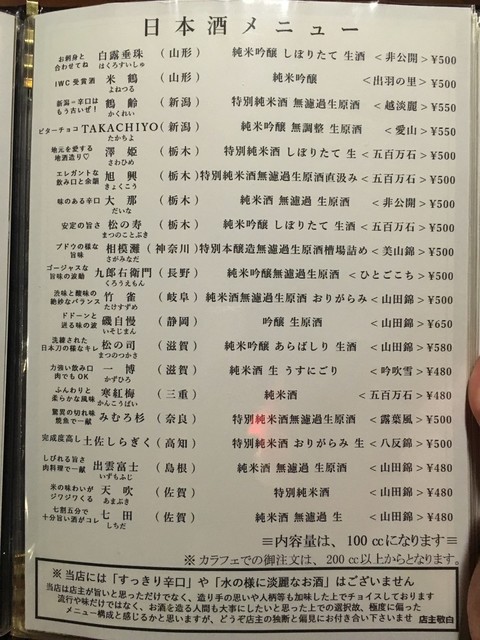 日本酒メニュー
お刺身と合わせてね 白露垂珠 はくろすいしゅ (山形) 純米吟醸 しぼりたて 生酒 <非公開>¥500
IWC受賞酒 米鶴 よねつる (山形) 純米吟醸 <出羽の里>¥500
新潟=辛口はもう古いぜ! 鶴齢 かくれい (新潟) 特別純米酒 無濾過生原酒 <越淡麗>¥550
ビターチョコ TAKACHIYO たかちよ (新潟) 純米吟醸 無調整 生原酒 <愛山>¥550
地元を愛する地酒造り♡ 澤姫 さわひめ (栃木) 特別純米酒 しぼりたて 生 <五百万石>¥500
エレガントな飲み口と余韻 旭興 きょくこう (栃木) 特別純米酒無濾過生原酒直汲み <五百万石>¥500
味のある辛口 大那 だいな (栃木) 純米酒 無濾過生原酒 <非公開>¥500
安定の旨さ 松の寿 まつのことぶき (栃木) 純米吟醸 しぼりたて 生酒 <五百万石>¥500
ブドウの様な旨味 相模灘 さがみなだ (神奈川) 特別本醸造無濾過生原酒槽場詰め <美山錦>¥500
ゴージャスな旨味の波動 九郎右衛門 くろうえもん (長野) 純米吟醸無濾過生原酒 <ひとごこち>¥500
渋味と酸味の絶妙なバランス 竹雀 たけすずめ (岐阜) 純米吟醸無濾過生原酒 おりがらみ <山田錦>¥500
ドドーンと迫る味の波 磯自慢 いそじまん (静岡) 吟醸 生原酒 <山田錦>¥650
洗練された日本刀の様なキレ 松の司 まつのつかさ (滋賀) 純米吟醸 あらばしり 生酒 <山田錦>¥580
力強い飲み口肉でもOK 一博 かずひろ (滋賀) 純米酒 生 うすにごり <吟吹雪>¥480
ふんわりと柔らかな風味 寒紅梅 かんこうばい (三重) 純米酒 <五百万石>¥480
驚異の切れ味焼魚で一献 みむろ杉 (奈良) 特別純米酒無濾過生原酒 <露葉風>¥500
完成度高し 土佐しらぎく (高知) 特別純米酒 おりがらみ 生 <八反錦>¥500
しびれる旨さ肉料理で一献 出雲富士 いずもふじ (島根) 純米酒 無濾過 生原酒 <山田錦>¥480
米の味わいがジワジワくる 天吹 あまぶき (佐賀) 特別純米酒 <山田錦>¥480
七割五分で十分旨い酒がコレ 七田 しちだ (佐賀) 純米酒 無濾過 生 <山田錦>¥480
≡内容量は、100ccになります≡
※カラフェでの御注文は、200cc以上からとなります。
※当店には「すっきり辛口」や「水の様に淡麗なお酒」はございません
当店は店主が旨いと思っただけでなく、造り手の思いや人柄等も加味した上でチョイスしております
流行や味だけではなく、お酒を造る人間も大事にしたいと思った上での選択故、極度に偏った
メニュー構成と感じるかと思いますが、どうぞ店主の独断と偏見にお付き合い下さいませ 店主敬白